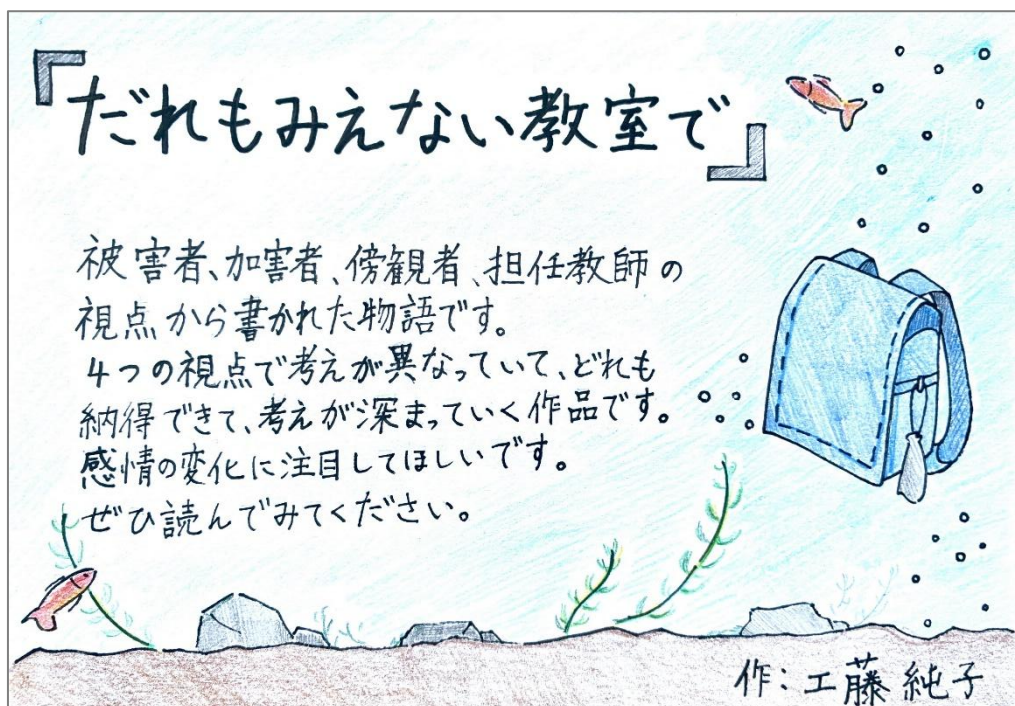 『だれもみえない教室で』
被害者、加害者、傍観者、担任教師の
視点から書かれた物語です。
4つの視点で考えが異なっていて、どれも
納得できて、考えが深まっていく作品です。
感情の変化に注目してほしいです。
ぜひ読んでみてください。
作：工藤純子